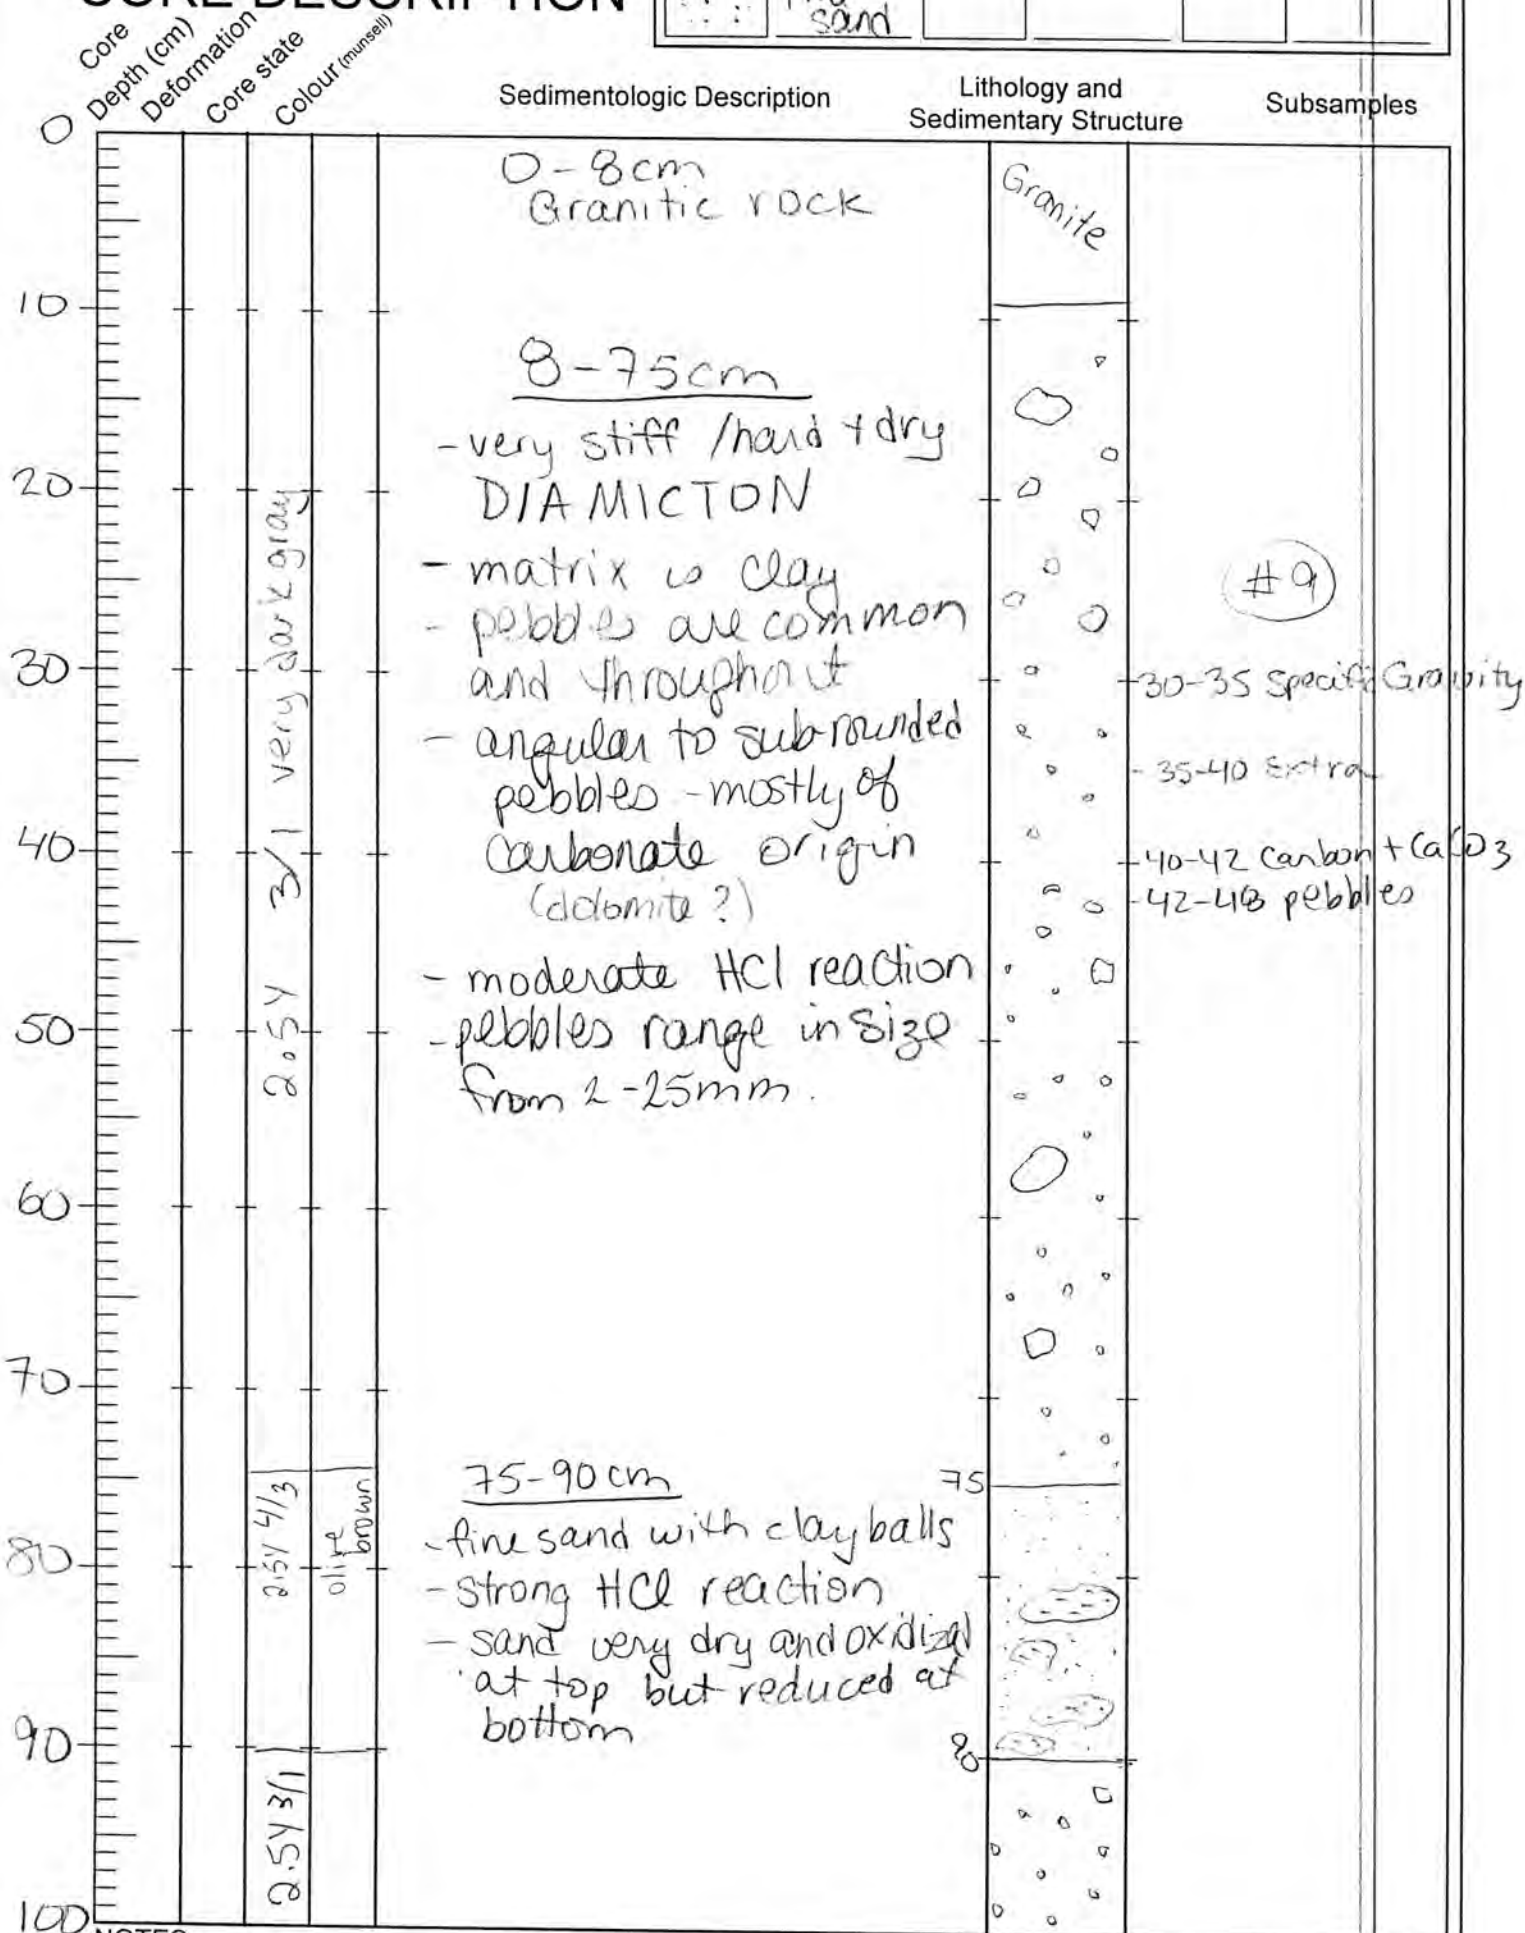 CORE DESCRIPTION
sand
Core
Depth (cm)
Deformation
Core state
Colour (munsell)
Sedimentologic Description
Lithology and
Sedimentary Structure
Subsamples
0
10
20
30
40
50
60
70
80
90
100
2.5Y 3/1 very dark gray
2.5Y 4/3
olive
brown
2.5Y 3/1
0-8cm
Granitic rock
8-75cm
- very stiff /hard + dry
DIAMICTON
- matrix is clay
- pebbles are common
and throughout
- angular to sub-rounded
pebbles - mostly of
carbonate origin
(dolomite?)
- moderate HCl reaction
- pebbles range in size
from 2-25mm.
75-90cm
- fine sand with clay balls
- strong HCl reaction
- sand very dry and oxidized
at top but reduced at
bottom
Granite
75
90
#9
-30-35 Specific Gravity
- 35-40 Extra
-40-42 Carbon + CaCO3
-42-48 pebbles
NOTES